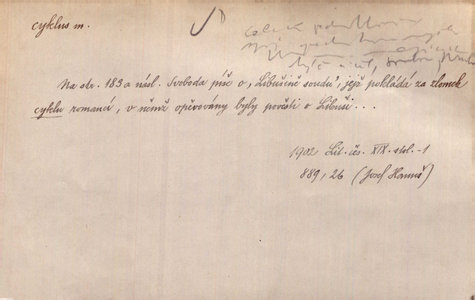 cyklus m.
Na str. 183 a násl. Svoboda píše o "Libušině soudu", jejž pokládá za zlomek
cyklu romancí, v němž opěvovány byly pověsti o Libuši...
1902 Lit. čes. XIX. stol.-1
889, 26 (Josef Hanuš)